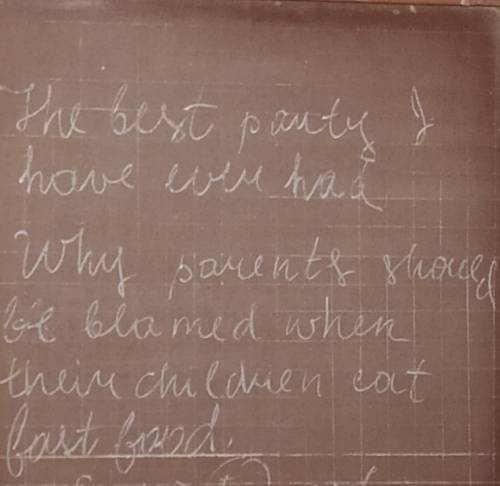 The best party I
have ever had
Why parents should
be blamed when
their children eat
fast food.